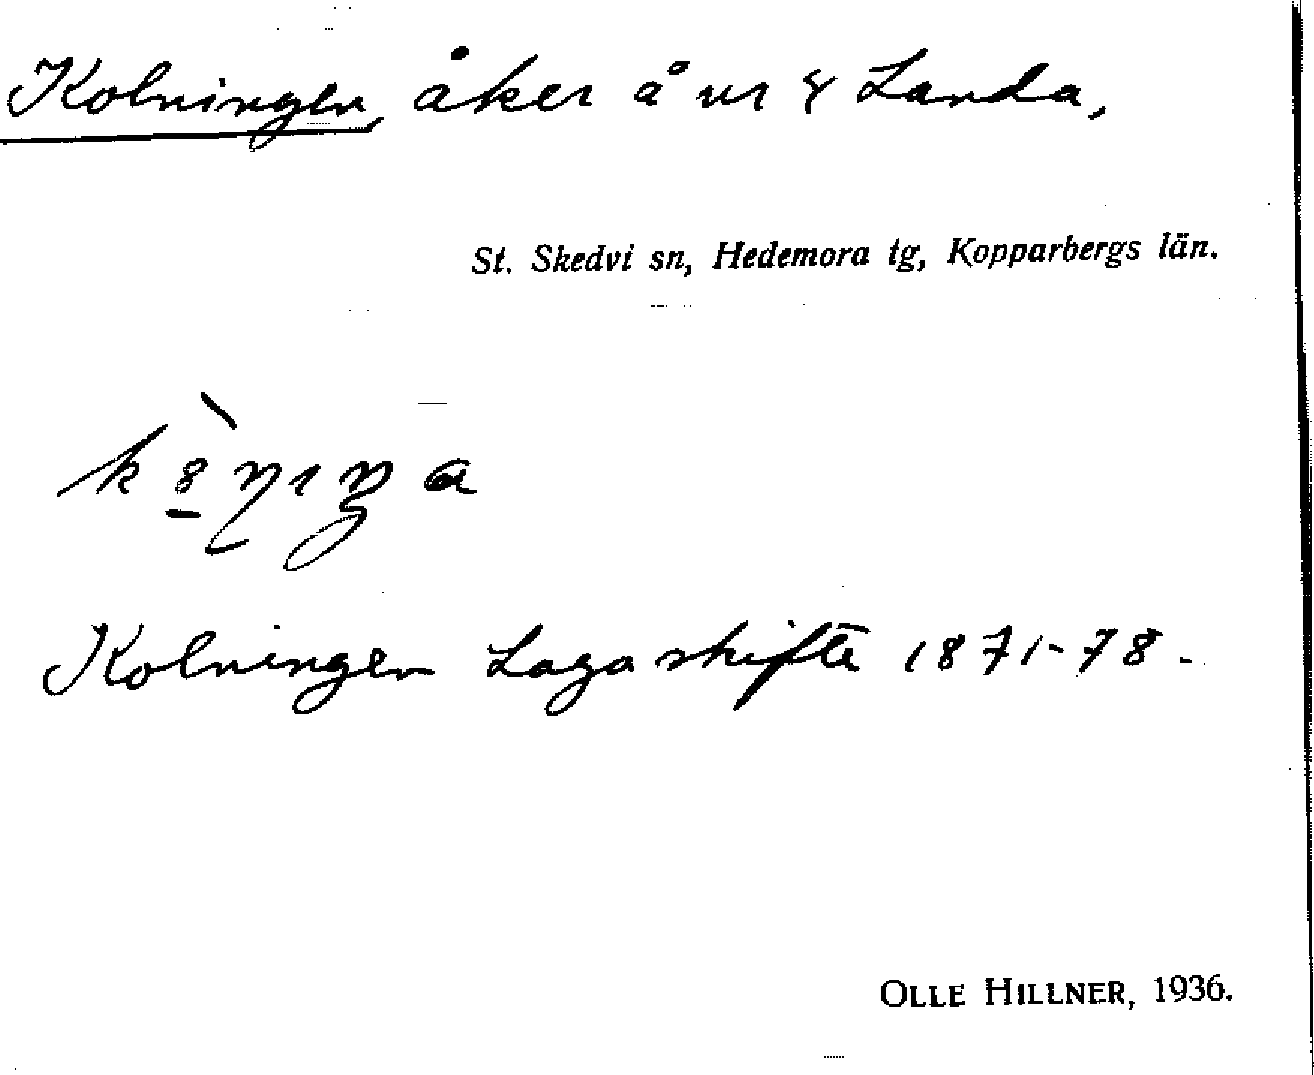 Kolningen, åker å nr 8 Landa,
St. Skedvi sn, Hedemora tg, Kopparbergs län.
Kolningen Laga skifte 1871-78.
OLLE HILLNER, 1936.